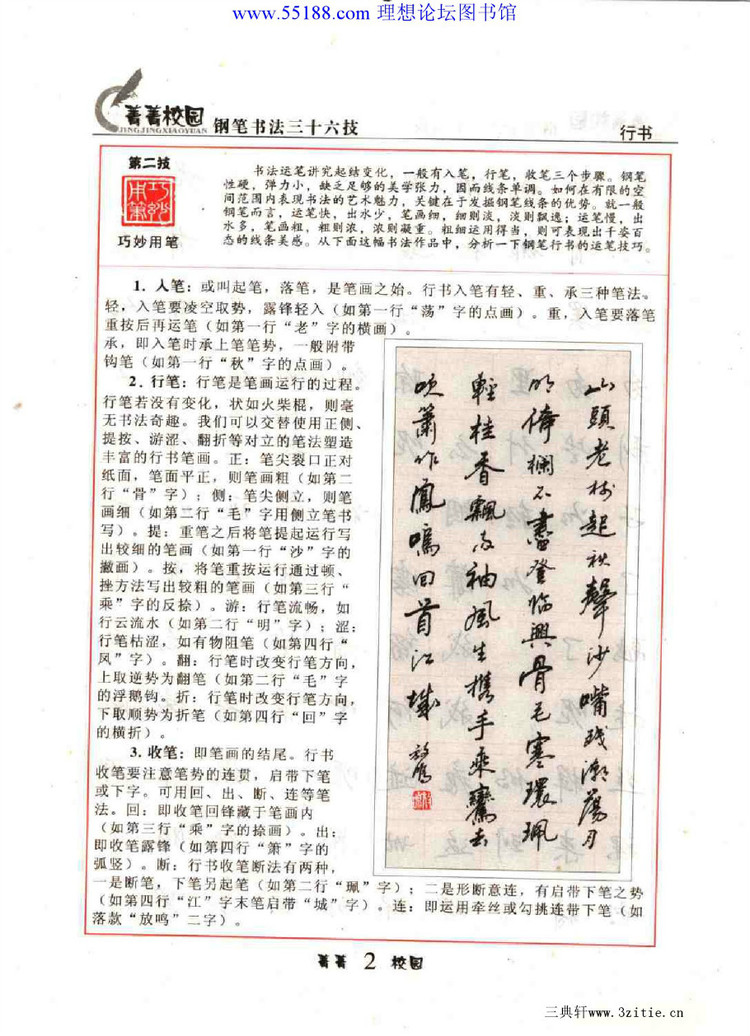 www.55188.com 理想论坛图书馆
菁菁校园 钢笔书法三十六技 行书
JINGJINGXIAOYUAN
第二技
巧妙用笔
巧妙用笔
书法运笔讲究起结变化，一般有入笔，行笔，收笔三个步骤。钢笔
性硬，弹力小，缺乏足够的美学张力，因而线条单调。如何在有限的空
间范围内表现书法的艺术魅力，关键在于发掘钢笔线条的优势。就一般
钢笔而言，运笔快，出水少，笔画细，细则淡，淡则飘逸；运笔慢，出
水多，笔画粗，粗则浓，浓则凝重。粗细运用得当，则可表现出千姿百
态的线条美感。从下面这幅书法作品中，分析一下钢笔行书的运笔技巧。
1．人笔：或叫起笔，落笔，是笔画之始。行书入笔有轻、重、承三种笔法。
轻，入笔要凌空取势，露锋轻入（如第一行“荡”字的点画）。重，入笔要落笔
重按后再运笔（如第一行“老”字的横画）。
承，即入笔时承上笔笔势，一般附带
钩笔（如第一行“秋”字的点画）。
2．行笔：行笔是笔画运行的过程。
行笔若没有变化，状如火柴棍，则毫
无书法奇趣。我们可以交替使用正侧、
提按、游涩、翻折等对立的笔法塑造
丰富的行书笔画。正：笔尖裂口正对
纸面，笔面平正，则笔画粗（如第二
行“骨”字）；侧：笔尖侧立，则笔
画细（如第二行“毛”字用侧立笔书
写）。提：重笔之后将笔提起运行写
出较细的笔画（如第一行“沙”字的
撇画）。按，将笔重按运行通过顿、
挫方法写出较粗的笔画（如第三行“
乘”字的反捺）。游：行笔流畅，如
行云流水（如第二行“明”字）；涩：
行笔枯涩，如有物阻笔（如第四行“
风”字）。翻：行笔时改变行笔方向，
上取逆势为翻笔（如第二行“毛”字
的浮鹅钩。折：行笔时改变行笔方向，
下取顺势为折笔（如第四行“回”字
的横折）。
3．收笔：即笔画的结尾。行书
收笔要注意笔势的连贯，启带下笔
或下字。可用回、出、断、连等笔
法。回：即收笔回锋藏于笔画内
（如第三行“乘”字的捺画）。出：
即收笔露锋（如第四行“箫”字的
弧竖）。断：行书收笔断法有两种，
一是断笔，下笔另起笔（如第二行“珮”字）；二是形断意连，有启带下笔之势
（如第四行“江”字末笔启带“城”字）。连：即运用牵丝或勾挑连带下笔（如
落款“放鸣”二字）。
山頭老樹起秋聲沙嘴殘潮蕩月
明倚欄不盡登臨興骨毛寒環珮
輕桂香飄兩袖風生攜手乘鸞去
吹簫作鳳鳴回首江城
放鳴
菁菁 2 校园
三典轩www.3zitie.cn